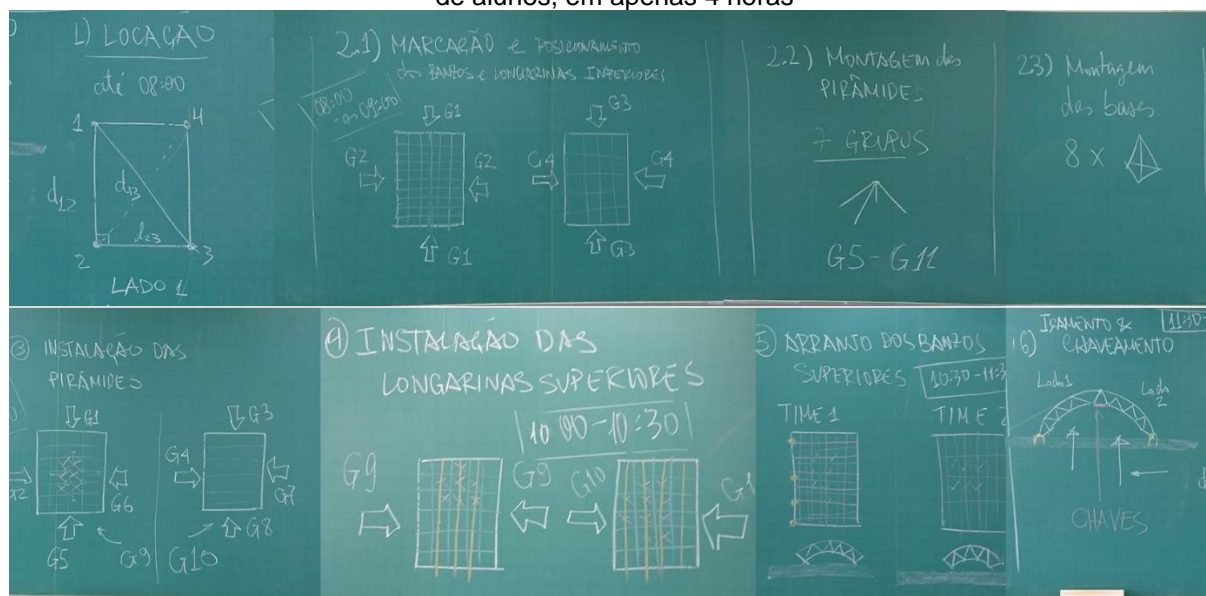 de alunos, em apenas 4 horas
1) LOCAÇÃO
até 08:00
1
4
d12
d13
d23
2
3
LADO 1
2.1) MARCAÇÃO e POSICIONAMENTO
dos BANZOS e LONGARINAS INFERIORES
08:00
às 09:00
G1
G2
G2
G1
G3
G4
G4
G3
2.2) MONTAGEM das
PIRÂMIDES
7 GRUPOS
G5 - G11
2.3) Montagem
das bases
8 x
3 INSTALAÇÃO DAS
PIRÂMIDES
G1
G2
G6
G5
G9
G3
G4
G7
G8
G10
4 INSTALAÇÃO DAS
LONGARINAS SUPERIORES
10:00-10:30
G9
G9
G10
G1
5 ARRANJO DOS BANZOS
SUPERIORES
10:30-11:3
TIME 1
TIME 2
6) IÇAMENTO &
CHAVEAMENTO
11:30-
Lado 1
Lado
2
CHAVES
d